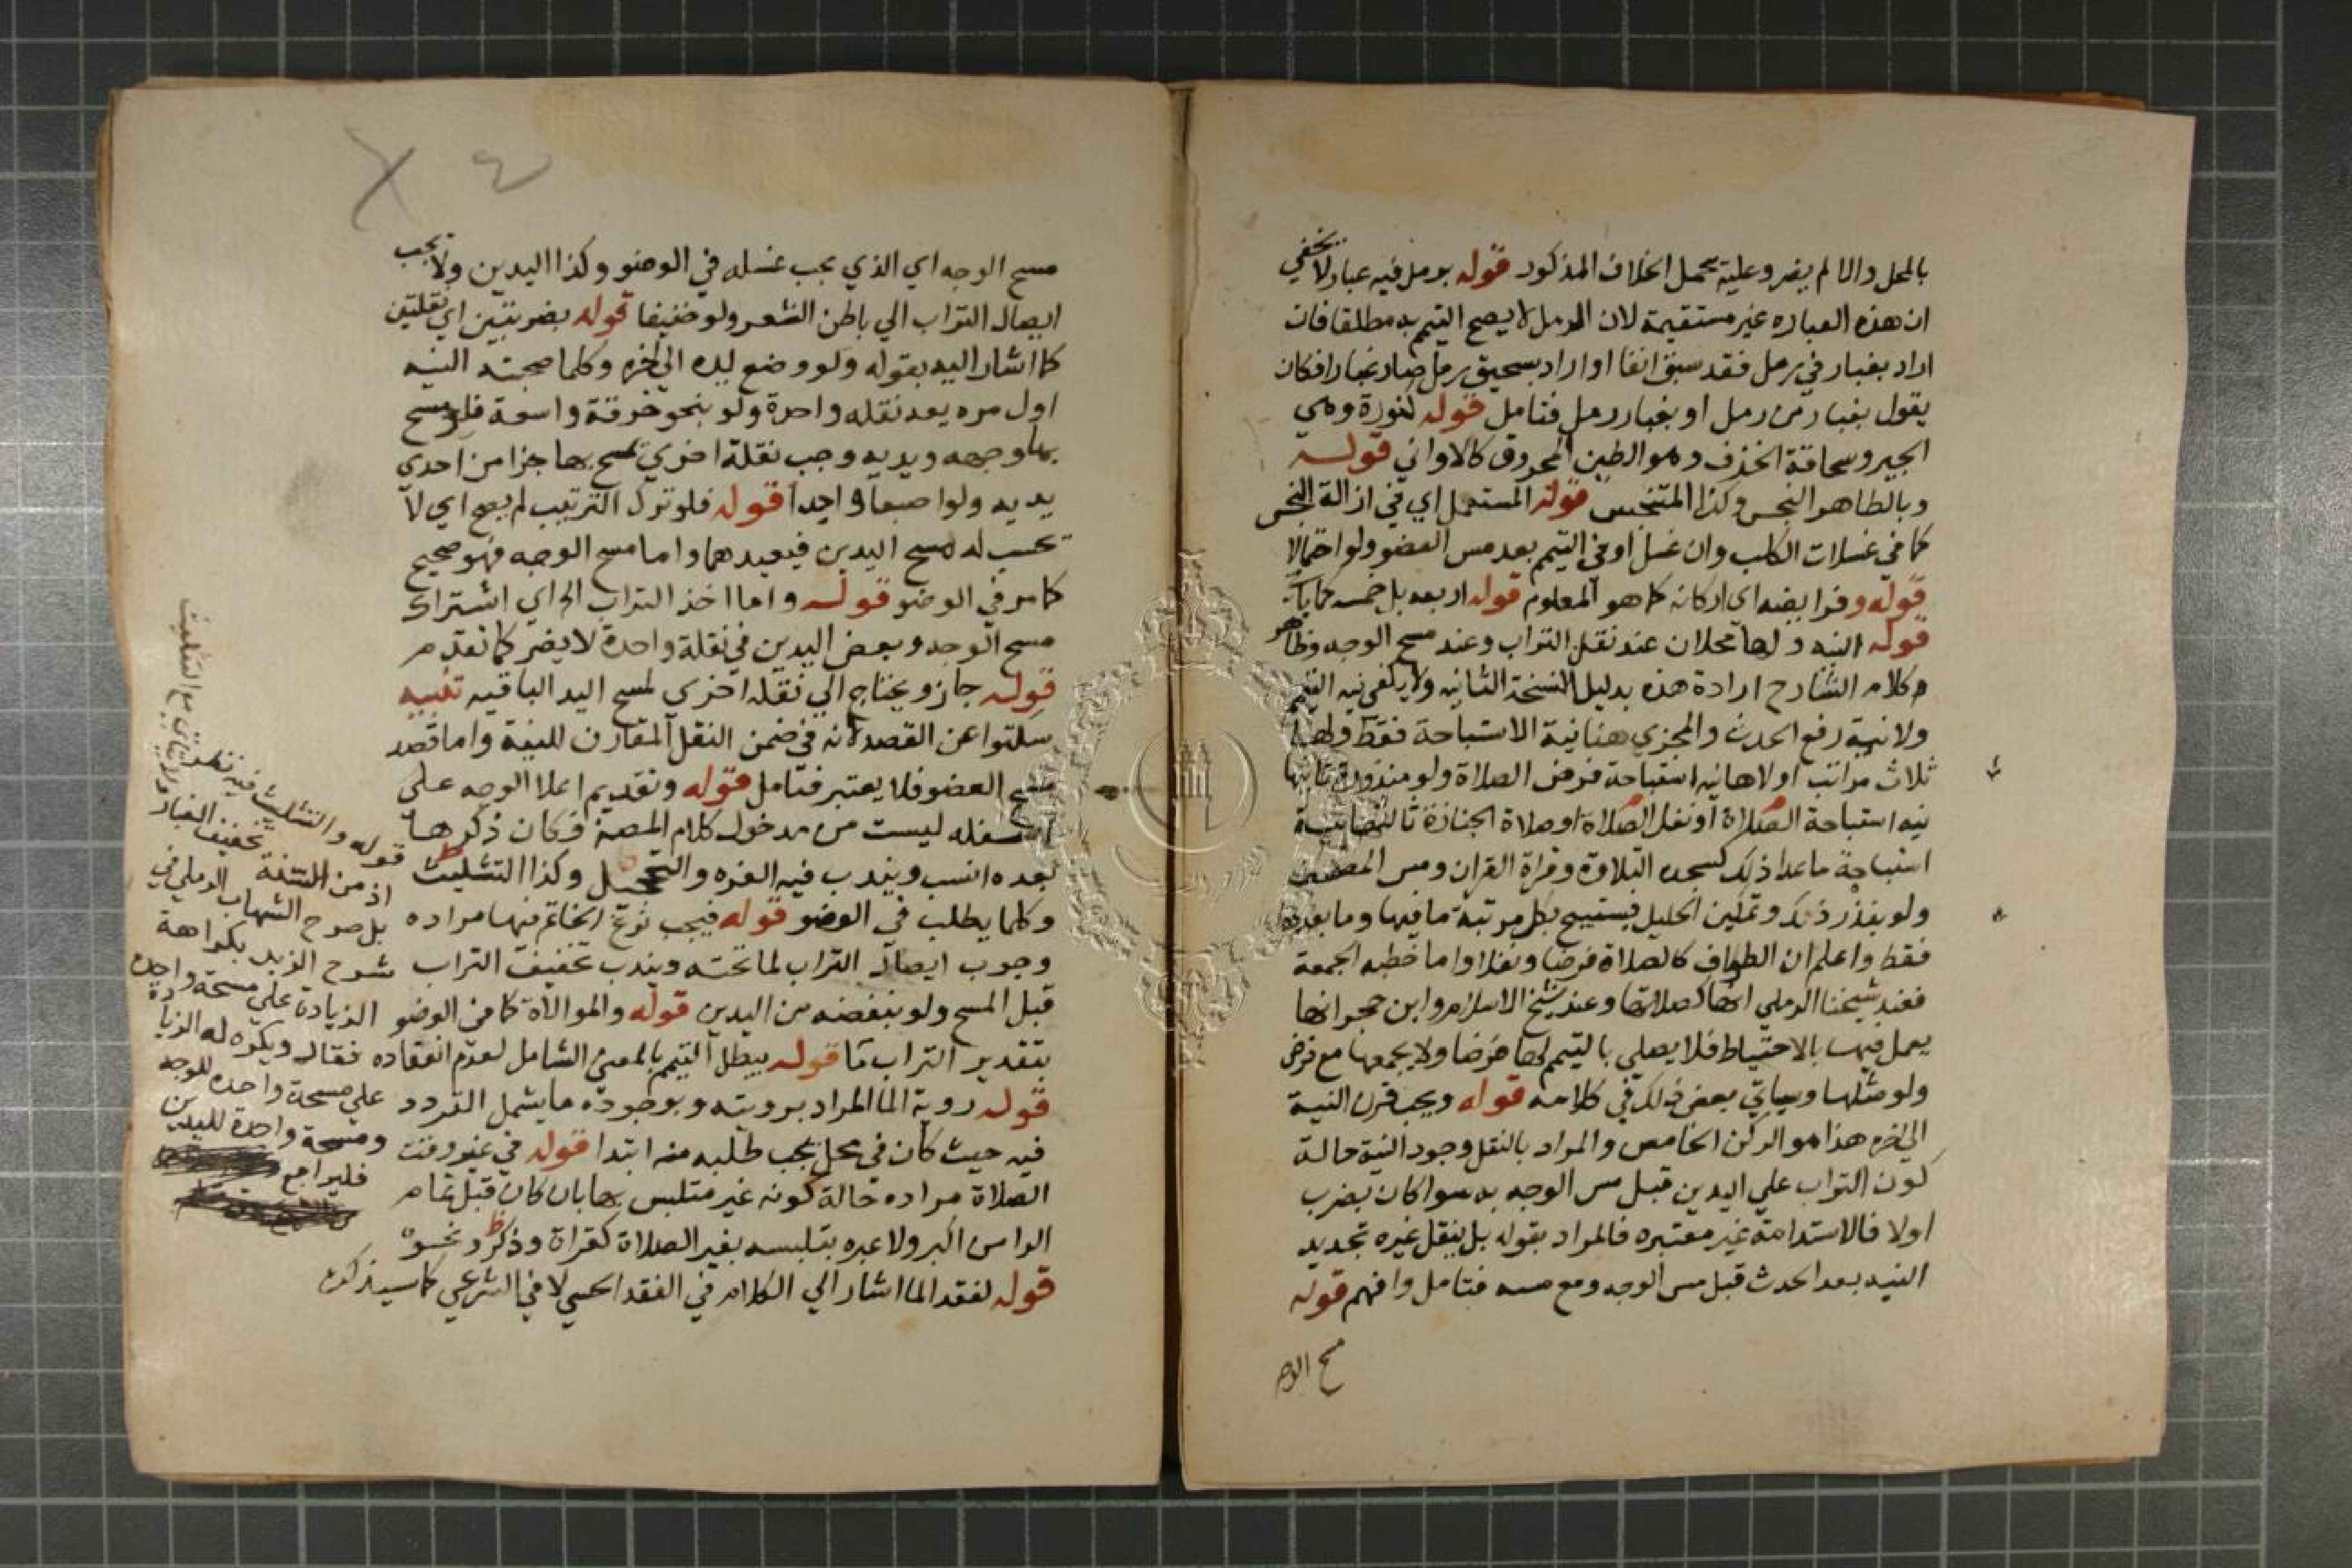 بالمحل والا لم يضر وعليه يحمل الخلاف المذكور قوله برمل فيه غبار لا يخفي
ان هذه العباره غير مستقيمة لان الرمل لا يصح التيمم به مطلقا فان
اراد بغبار في رمل فقد سبق انفا او اراد بسحيق رمل صار غبارا فكان
يقول بغبار من رمل او بغبار رمل فتامل قوله لنورة وهي
الجير وسحاقة الخذف وهو الطين المحروق كالاواني قوله
وبالطاهر النجس وكذا المتنجس قوله المستعمل اي في ازالة النجس
كما في غسلات الكلب وان غسل او في التيمم بعد مس العضو ولو احتمالا
قوله وفرايضه اي اركانه كما هو المعلوم قوله اربعه بل خمسه كما ياتي
قوله النيه ولها محلان عند نقل التراب وعند مسح الوجه وظاهر
كلام الشارح ارادة هذه بدليل النسخة الثانيه ولا يكفي نيه التيمم
ولا نية رفع الحدث والمجزي هنا نية الاستباحة فقط ولها
ثلاث مراتب اولاها نيه استباحة فرض الصلاة ولو منذورة ثانيها
نيه استباحة الصلاة او نفل الصلاة او صلاة الجنازة ثالثها نية
استباحة ما عدا ذلك كسجده التلاوة وقراة القران ومس المصحف
ولو بنذر ذلك وتمكين الحليل فيستبيح بكل مرتبة ما فيها وما بعدها
فقط واعلم ان الطواف كالصلاة فرضا ونفلا واما خطبه الجمعة
فعند شيخنا الرملي انها كصلاتها وعند شيخ الاسلام وابن حجر انها
يعمل فيها بالاحتياط فلا يصلي بالتيمم لها فرضا ولا يجمعها مع فرض
ولو مثلها وسياتي بعض ذلك في كلامه قوله ويجب قرن النية
الي اخره هذا هو الركن الخامس والمراد بالنقل وجود النية حالة
كون التراب علي اليدين قبل مس الوجه به سوا كان بضرب
اولا فالاستدامة غير معتبره فالمراد بقوله بل ينقل غيره تجديد
النيه بعد الحدث قبل مس الوجه ومع مسه فتامل وافهم قوله
مسح الوجه
مسح الوجه اي الذي يجب غسله في الوضو وكذا اليدين ولا يجب
ايصال التراب الي باطن الشعر ولو خفيفا قوله بضربتين اي نقلتين
كما اشار اليه بقوله ولو وضع يده الي اخره وكلما صحبته النيه
اول مره يعد نقله واحدة ولو بنحو خرقة واسعة فلو مسح
بها وجهه ويديه وجب نقلة اخري يمسح بها جزا من احدي
يديه ولو اصبعا واحدا قوله فلو ترك الترتيب لم يصح اي لا
تحسب له مسح اليدين فيعيدهما واما مسح الوجه فهو صحيح
كما مر في الوضو قوله واما اخذ التراب الخ اي اشتراك
مسح الوجه وبعض اليدين في نقلة واحدة لا يضر كما تقدم
قوله جاز ويحتاج الي نقله اخري لمسح اليد الباقيه تنبيه
سكتوا عن القصد لانه في ضمن النقل المقارن للنية واما قصد
مسح العضو فلا يعتبر فتامل قوله وتقديم اعلا الوجه علي
اسفله ليست من مدخول كلام المصنف فكان ذكرها
بعده انسب ويندب فيه الغره والتحجيل وكذا التثليث
وكلما يطلب في الوضو قوله فيجب نزع الخاتم فيها مراده
وجوب ايصال التراب لما تحته ويندب تخفيف التراب
قبل المسح ولو بنفضه من اليدين قوله والموالاة كما في الوضو
بتقدير التراب ما قوله يبطل التيمم بالمعني الشامل لعدم انعقاده
قوله روية الما المراد برويته وبوجوده ما يشمل التردد
فيه حيث كان في محل يجب طلبه منه ابتدا قوله في غير وقت
الصلاة مراده حالة كونه غير متلبس بها بان كان قبل تمام
الرا من اكبر ولا عبره بتلبسه بغير الصلاة كقراة وذكر ونحوه
قوله لفقد الما اشار الي الكلام في الفقد الحسي لا في الشرعي كما سيذكره
قوله والتثليث فيه نظر
ولا ينافي مع التثليث
تخفيف الغبار
اذ من السنة
بل صرح الشهاب الرملي في
شرح الزبد بكراهة
الزيادة علي مسحة واحدة
فقال ويكره له الزيادة
علي مسحة واحده للوجه
ومسحة واحدة لليدين
فليراجع